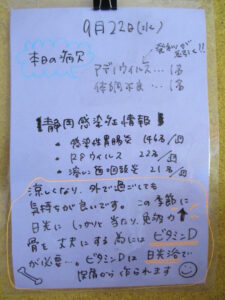 9月22日(水)
本日の病欠
発熱が
アデノウイルス… 1名
体調不良 … 1名
【静岡感染症情報】
・感染性胃腸炎 146名/週
・RSウイルス 22名/週
・溶レン菌咽頭炎 21名/週
涼しくなり、外で過ごしても
気持ちが良いです。この季節に
日光にしっかりと当たり、免疫力↑
骨を丈夫にする為にはビタミンD
が必要…。ビタミンDは日光浴で
皮膚から作られます